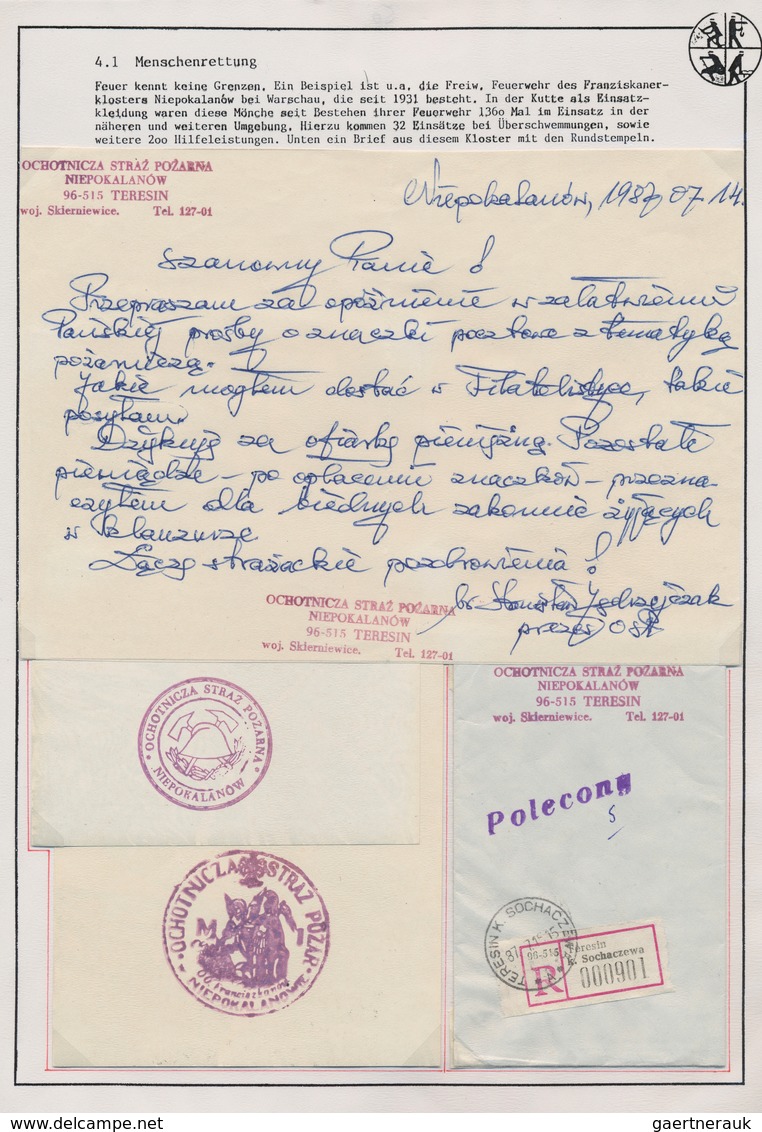 4.1 Menschenrettung
Feuer kennt keine Grenzen. Ein Beispiel ist u.a. die Freiw. Feuerwehr des Franziskaner-
klosters Niepokalanów bei Warschau, die seit 1931 besteht. In der Kutte als Einsatz-
kleidung waren diese Mönche seit Bestehen ihrer Feuerwehr 136o Mal im Einsatz in der
näheren und weiteren Umgebung. Hierzu kommen 32 Einsätze bei Überschwemmungen, sowie
weitere 2oo Hilfeleistungen. Unten ein Brief aus diesem Kloster mit den Rundstempeln.
OCHOTNICZA STRAŻ POŻARNA
NIEPOKALANÓW
96-515 TERESIN
woj. Skierniewice. Tel. 127-01
Niepokalanów, 1987 07 14.
Szanowny Panie!
Przepraszam za opóźnienie w załatwieniu
Pańskiej prośby o znaczki pocztowe z tematyką
pożarniczą.
Jakie mogłem dostać w Filatelistyce, takie
posyłam.
Dziękuję za ofiarkę pieniężną. Pozostałe
pieniądze – po opłaceniu znaczków – przezna-
czyłem dla biednych zakonnic żyjących
w klauzurze
Łączę strażackie pozdrowienia!
br. Stanisław Jędrzejczak
prezes OSP
OCHOTNICZA STRAŻ POŻARNA
NIEPOKALANÓW
96-515 TERESIN
woj. Skierniewice. Tel. 127-01
OCHOTNICZA STRAŻ POŻARNA
NIEPOKALANÓW
OCHOTNICZA STRAŻ POŻARNA
NIEPOKALANÓW
96-515 TERESIN
woj. Skierniewice. Tel. 127-01
Polecony
OCHOTNICZA STRAŻ POŻAR.
M I
OO. Franciszkanów
NIEPOKALANOWIE
TERESIN K. SOCHACZ
R
96-515
Teresin
k. Sochaczewa
000901
www.delcampe.net
gaertnerauk